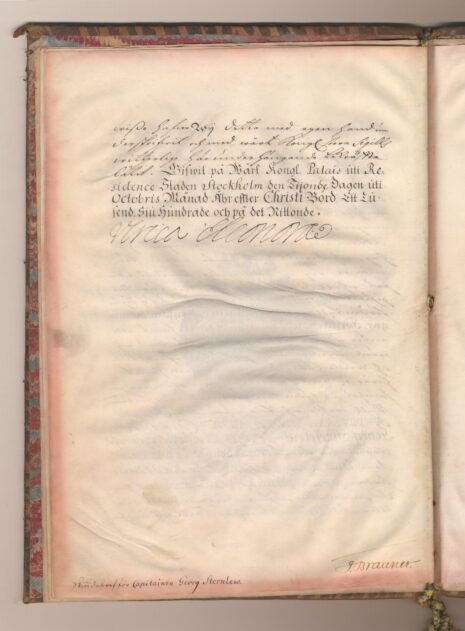 wisse hafwe Wij detta med egen hand un-
derskrifwit och med wårt Kongl. Secret
witterligen här under hängande bekräffta
låtit. Gifwit på Wårt Kongl. Palais uti Re-
sidence Staden Stockholm den Tijonde Dagen uti
Octobris Månad Åhr effter Christi Bord Ett Tu-
send Siu Hundrade och på det Nittonde.
Ulrica Eleonora
J. Brauner.
för Capitainen Georg Sternlew.